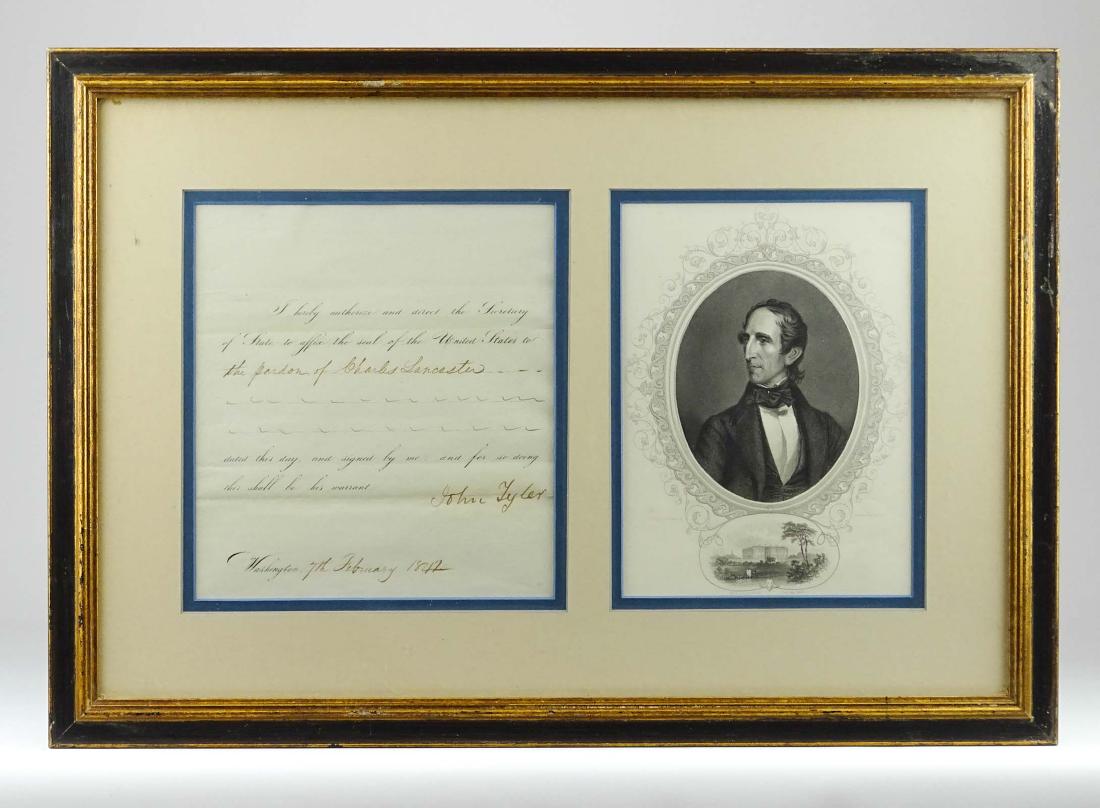 I hereby authorize and direct the Secretary
of State to affix the seal of the United States to
the pardon of Charles Lancaster
dated this day, and signed by me and for so doing
this shall be his warrant
John Tyler
Washington, 7th February 1842